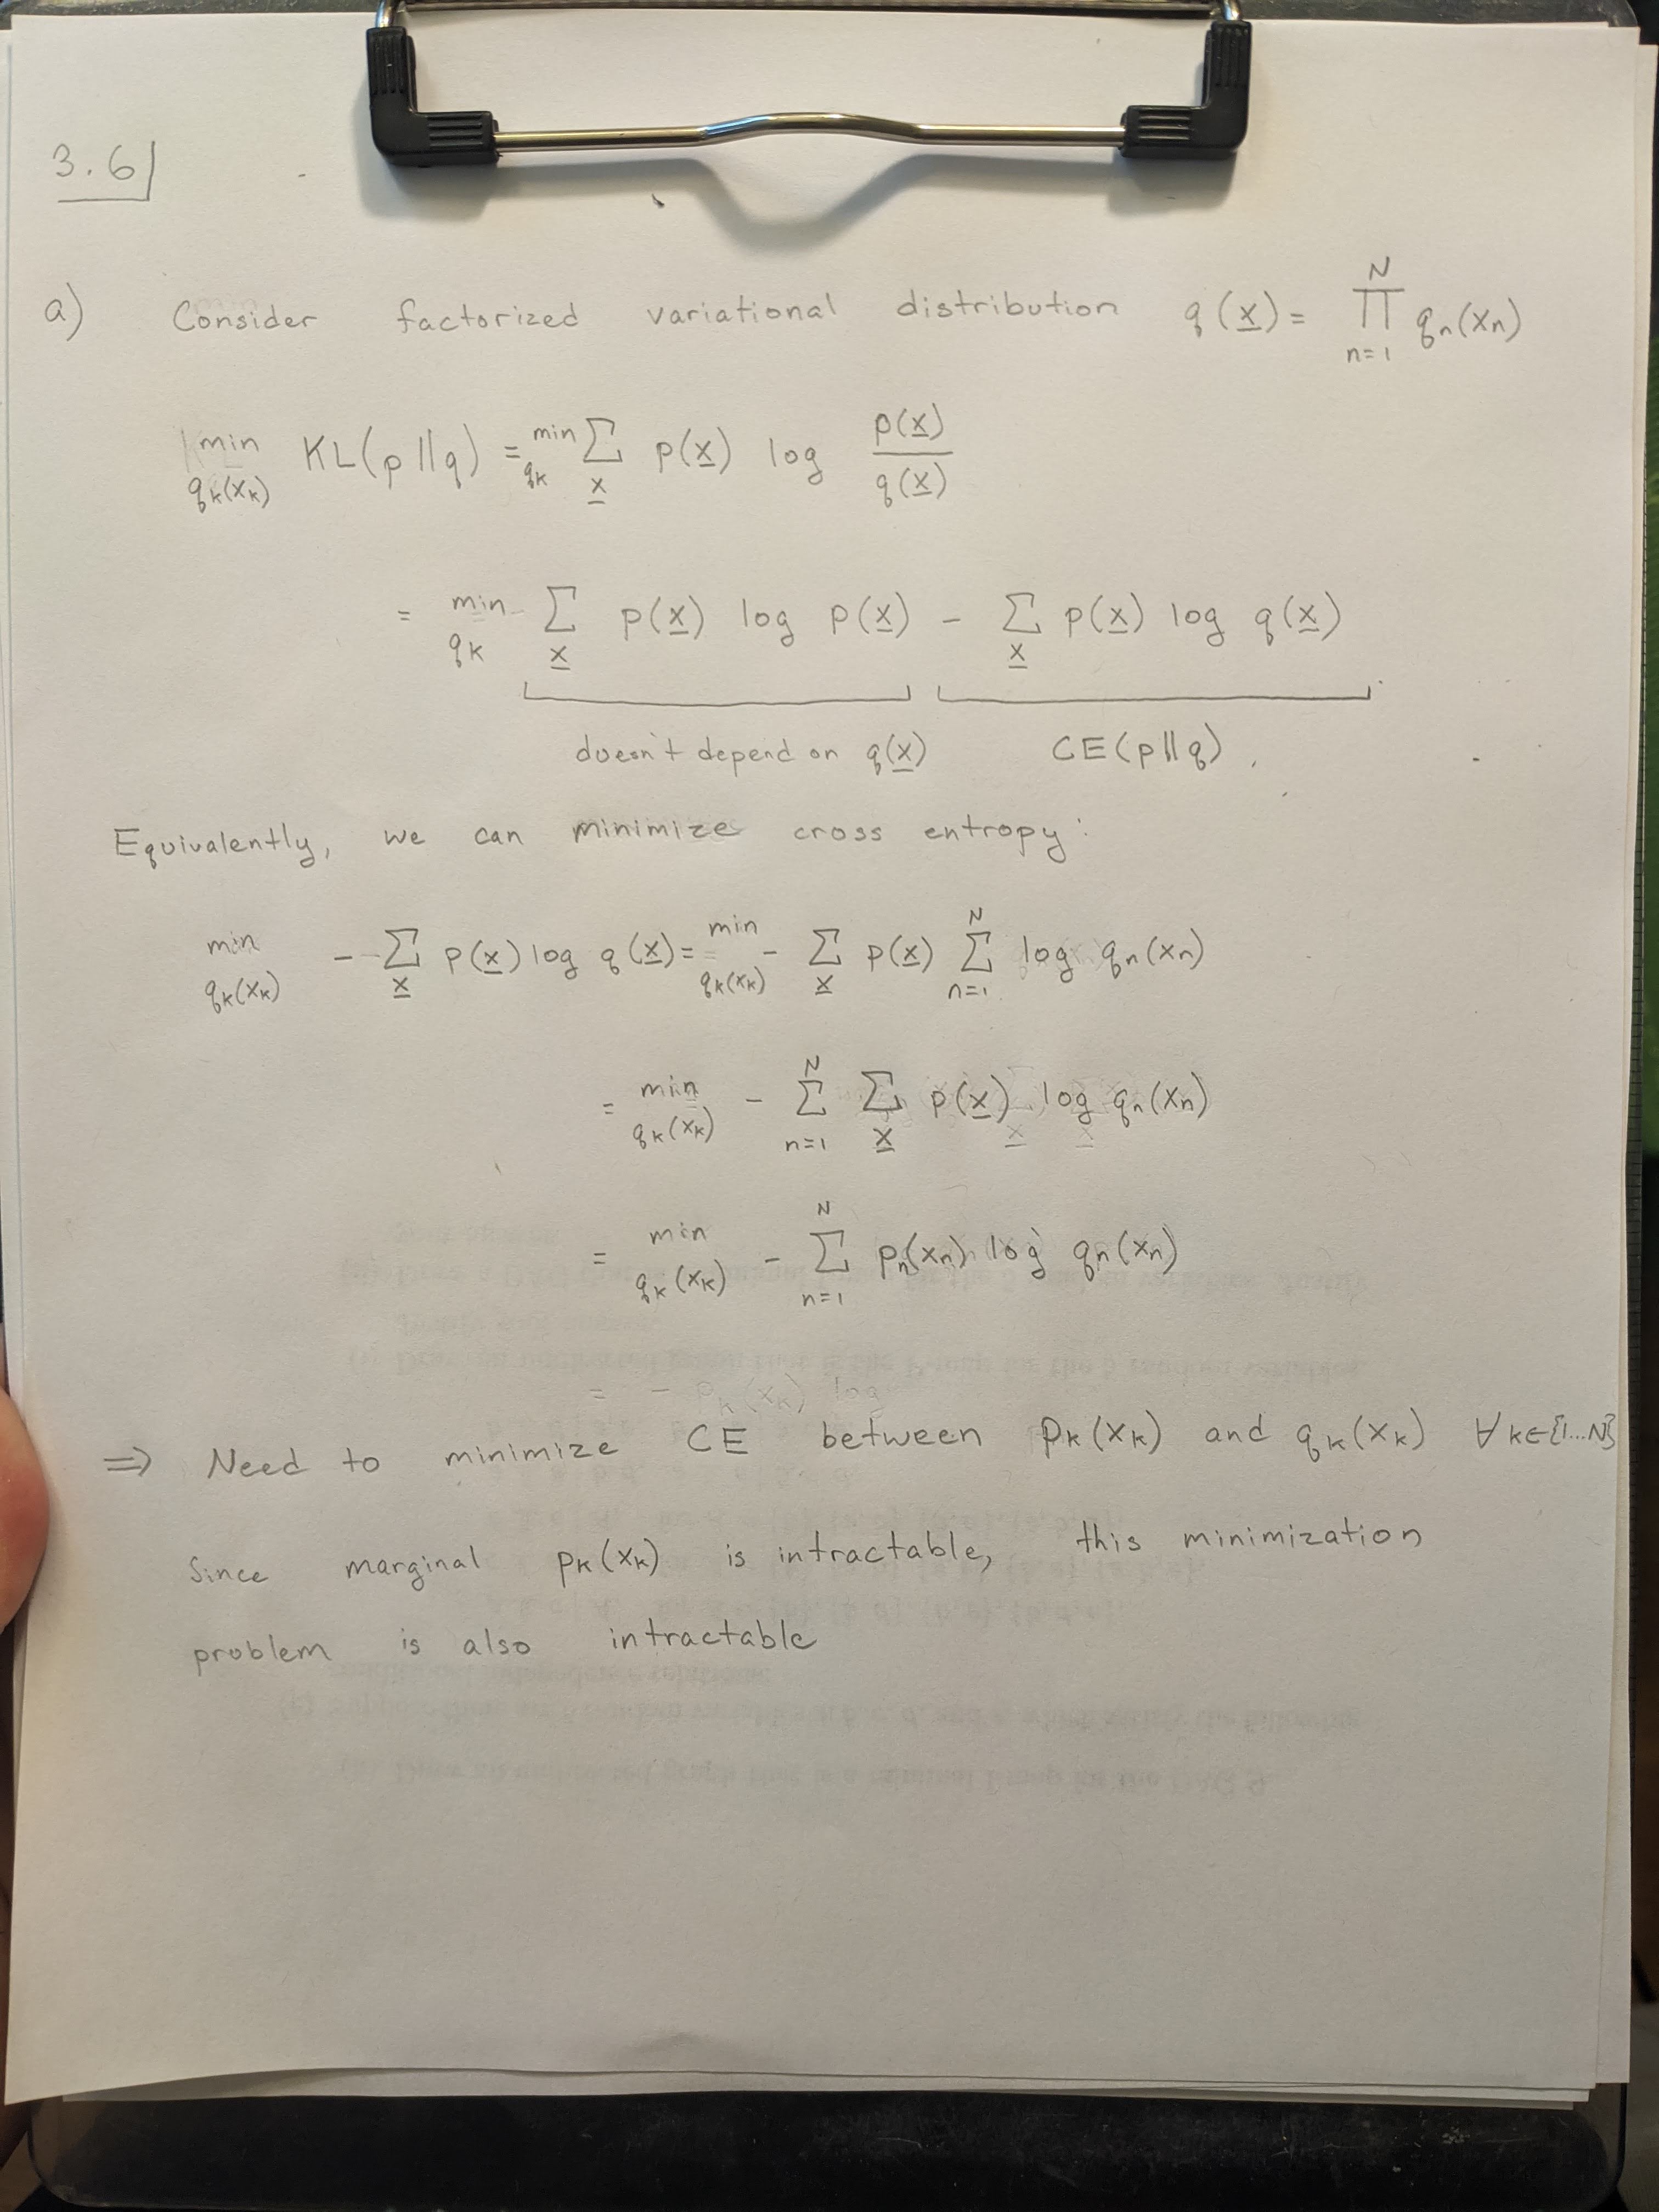 3.6
a) Consider factorized variational distribution q(x) = ∏_{n=1}^{N} q_n(x_n)
min_{q_k(x_k)} KL(p||q) = min_{q_k} Σ_x p(x) log p(x)/q(x)
= min_{q_k} Σ_x p(x) log p(x) - Σ_x p(x) log q(x)
doesn't depend on q(x) CE(p||q).
Equivalently, we can minimize cross entropy:
min_{q_k(x_k)} - Σ_x p(x) log q(x) = min_{q_k(x_k)} - Σ_x p(x) Σ_{n=1}^{N} log q_n(x_n)
= min_{q_k(x_k)} - Σ_{n=1}^{N} Σ_x p(x) log q_n(x_n)
= min_{q_k(x_k)} - Σ_{n=1}^{N} p_n(x_n) log q_n(x_n)
= - p_k(x_k) log
⇒ Need to minimize CE between p_k(x_k) and q_k(x_k) ∀ k∈{1...N}
Since marginal p_k(x_k) is intractable, this minimization
problem is also intractable